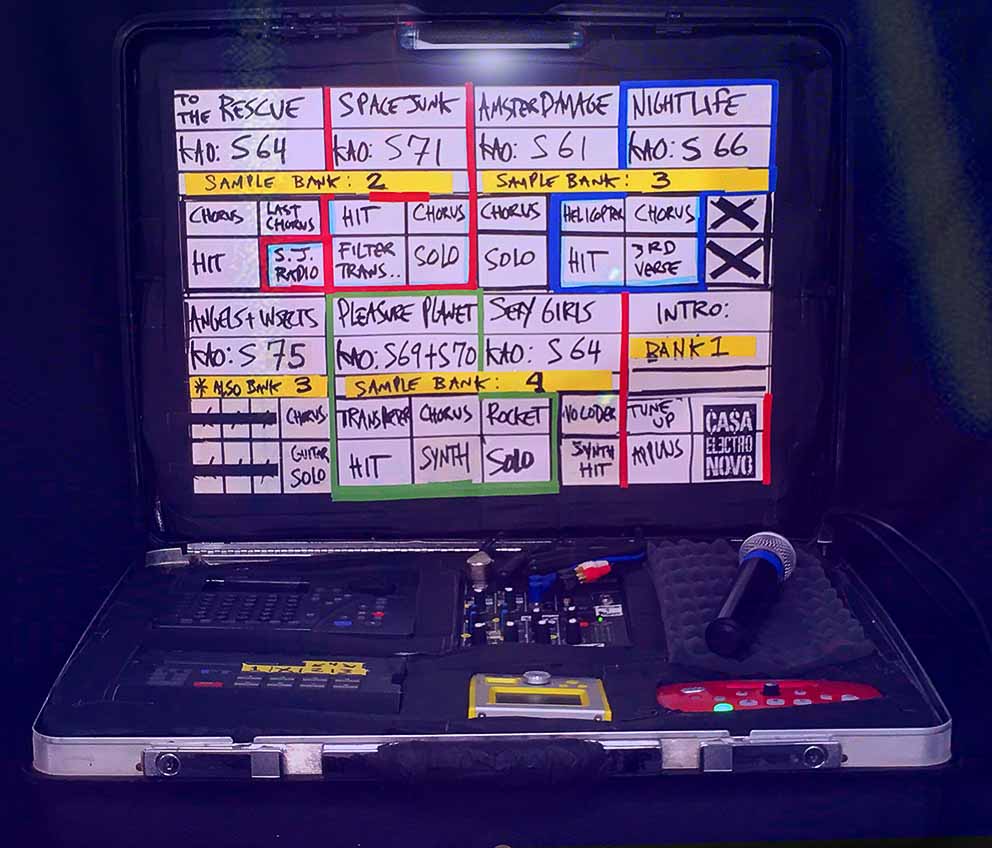 TO THE RESCUE
SPACE JUNK
AMSTERDAMAGE
NIGHTLIFE
KAO: S64
KAO: S71
KAO: S61
KAO: S 66
SAMPLE BANK: 2
SAMPLE BANK: 3
CHORUS
LAST CHORUS
HIT
CHORUS
CHORUS
HELICOPTER
CHORUS
X
HIT
S.J. RADIO
FILTER TRANS..
SOLO
SOLO
HIT
3RD VERSE
X
ANGELS + INSECTS
PLEASURE PLANET
SEXY GIRLS
INTRO:
KAO: S 75
KAO: S69+S70
KAO: S 64
BANK 1
* ALSO BANK 3
SAMPLE BANK: 4
CHORUS
CHORUS
ROCKET
VOCODER
TUNE UP
CASA
ELECTRO
NOVO
GUITAR SOLO
HIT
SYNTH
SOLO
SYNTH HIT